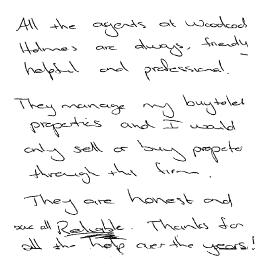 All the agents at Woodcock
Holmes are always, friendly
helpful and professional.
They manage my buytolet
properties and I would
only sell or buy propeties
through this firm.
They are honest and
above all Reliable. Thanks for
all the help over the years!